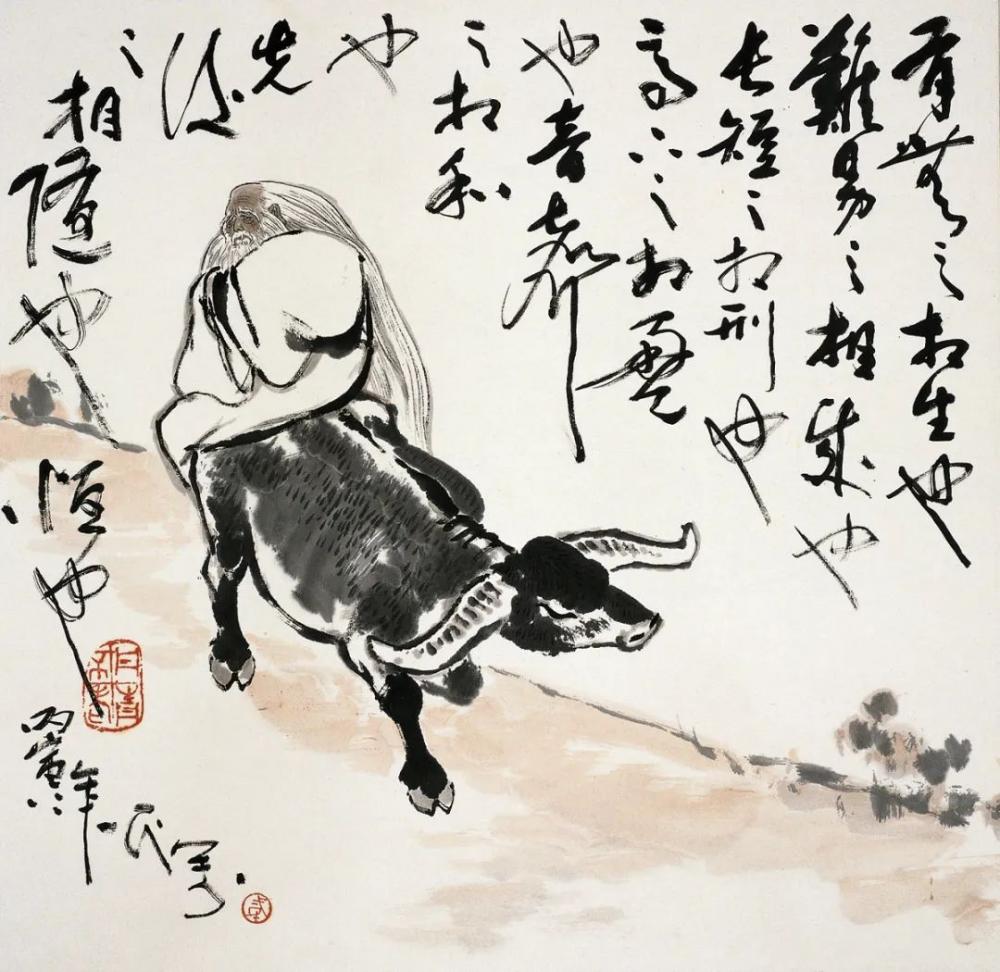 有無之相生也
難易之相成也
長短之相刑也
高下之相盈
也音聲
之相和
也
先
後
之相隨也
恒也
丙寅年
寫